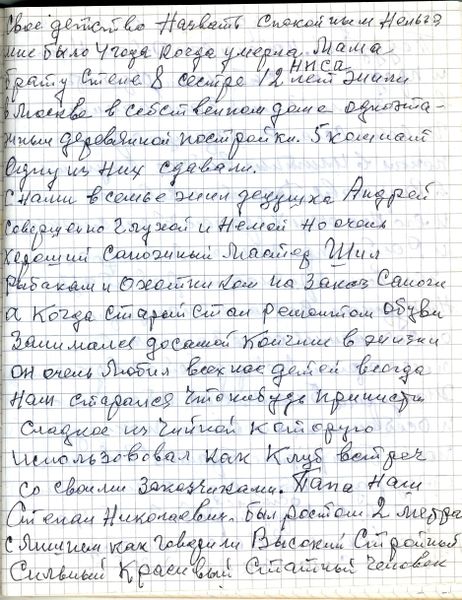 Свое детство Назвать Спокойным Нельзя
мне было 4 года когда умерла Мама
брату Степе 8 сестре 12 лет жили
Нисa
в Москве в собственном доме одноэта-
жным деревянной постройки. 5 комнат
одну из них сдавали.
С нами в семье жил дедушка Андрей
совершено Глухой и Немой но очень
хороший Сапожный Мастер Шил
рыбакам и Охотникам на Заказ Сапоги
а Когда Старый стал ремонтом обуви
Занимался до самой кончине в жизни
он очень Любил всех нас детей всегда
нам старался Что нибудь принисти
сладкое из Чайной которую
использововал как Клуб встреч
со своими Заказчиками. Папа Наш
Степан Николаевич. был ростом 2 метра
с лишнем как говорили Высокий Стройный
Сильный Красивый Статный Человек